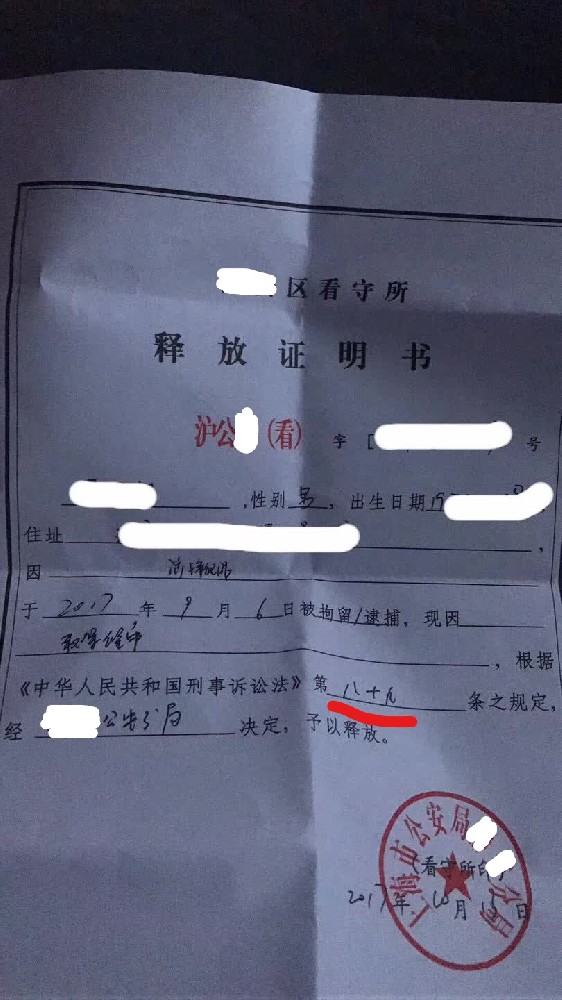 区看守所
释放证明书
沪公(看)字[号
,性别男,出生日期19
住址,
因
于2017年9月6日被拘留/逮捕,现因
取保候审,根据
《中华人民共和国刑事诉讼法》第八十九条之规定,
经公安分局决定,予以释放。
上海市公安局分局
(看守所印)
2017年10月13日